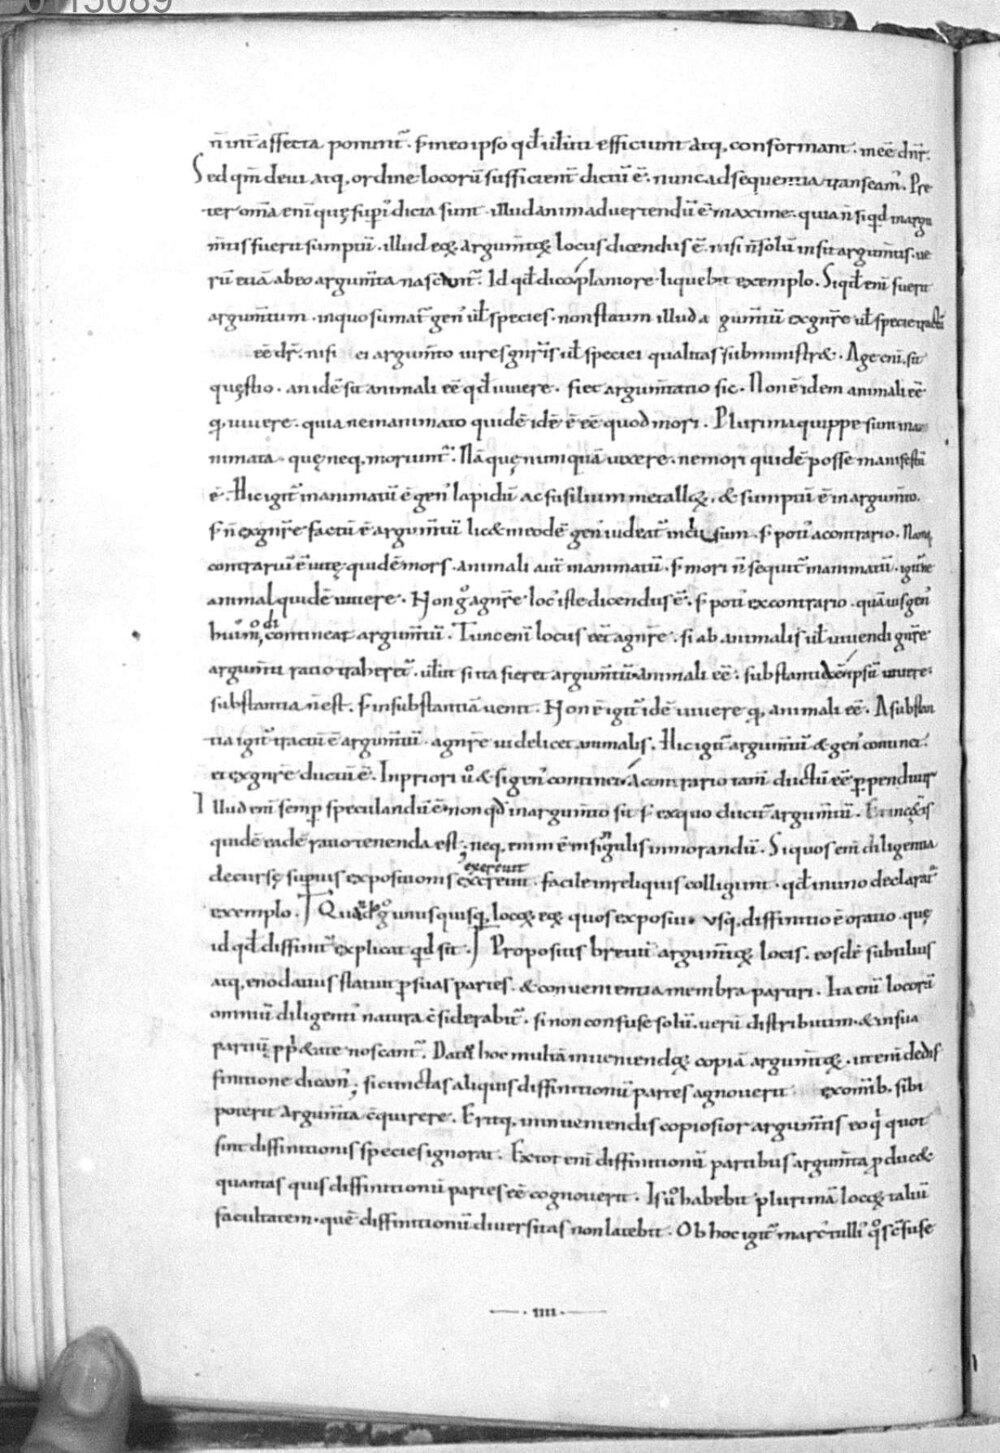 n̄ int̄ affecta pomint᷑. s̄ in eo ipso qđ uł́ uti efficiunt atq, conformant. inee᷑ dn̄r.
Sed qm̄ de ui atq, ordine locorū sufficient̄ dictū ē. nunc ad sequentia transeam᷑. Pre
ter om̄a eni᷑ quę sup᷑i dicta sunt. illud animaduertendū ē maxime. quia n̄ siqđ in argu
m̄tis fuerit sumptū. illud eꝝ argum̄toꝝ locus dicendus ē. nisi n̄ solū insit argum̄tis. ue
rū etiā ab eo argum̄ta nascunt᷑. Id qđ dico planiore liquebit exemplo. Si qđ eni᷑ fuerit
argum̄tum. in quo sumat᷑ gen᷑ uł́ species. non statim illud a gum̄tū ex gn̄re uł́ specie tractū
eē dr̄. nisi ei argum̄to uires gn̄ris uł́ speciei qualitas subministr&. Age eni᷑. sit
quęstio. an idē sit animali eē qđ uiuere. fiet argum̄tatio sic. Non ē idem animali eē
q, uiuere. quia ne inanimato quidē idē ē eē quod mori. Plurima quippe sunt ina
nimata. quę neq, moriunt᷑. Nā quę nunquā uixere. ne mori quidē posse manifestū
ē. Hic igit᷑ inanimatū ē gen᷑ lapidū ac fusilium metalloꝝ. & sumptū ē in argum̄to.
s̄ n̄ ex gn̄re factū ē argum̄tū lic& in eodē gen᷑ uideat᷑ inclusum. s̄ poti᷑ a contrario. Nanq
contrariū ē uitę quidē mors. animali aut̄ inanimatū. s̄ mori n̄ sequit᷑ inanimatū. igit᷑ ne
animal quidē uiuere. Non g̊ a gn̄re loc᷑ iste dicendus ē. s̄ poti᷑ ex contrario. quāuis gen᷑
huiusmodi contineat argum̄tū. Tunc eni᷑ locus eēt a gn̄re. si ab animalis uł́ uiuendi gn̄re
argum̄ti ratio traheret᷑. uł́ut si ita fieret argum̄tū. animali eē. substantia ē ipsū uiuere.
substantia n̄ est. s̄ in substantiā uenit. Non ē igit᷑ idē uiuere q, animali eē. A substan
tia igit᷑ tractū ē argum̄tū. a gn̄re uidelicet animalis. Hic igit᷑ argum̄tū & gen᷑ continet.
et ex gn̄re ductū ē. In priori ů & si gen᷑ continet. a contrario tam̄ ductū eē perpendit᷑
Illud eni᷑ semp speculandū ē non qđ in argum̄to sit s̄ ex quo ducit᷑ argum̄tū. Et in cęt̄is
quidē eadē ratio tenenda est. neq, enim ē in singulis inmorandū. Si quos eni᷑ diligentia
exercuit
decursę superius expositionis exercuit. facile in reliquis colligunt. qđ in uno declarat᷑
exemplo. Quid g̊ unus quisq, locoꝝ eꝝ quos exposui. usq, diffinitio ē oratio. quę
id qđ diffinit᷑ explicat qđ sit. Propositis breuit᷑ argum̄toꝝ locis. eosdē subtilius
atq, enodatius statuit p suas partes. & conuenientia membra partiri. Ita eni᷑ locorū
omniū diligenti᷑ natura c̄siderabit᷑. si non confuse solū. uerū distributim & in sua
partiū pp̄&ate noscant᷑. Datq hoc multā inueniendoꝝ copiā argum̄toꝝ. ut eni᷑ de dif
finitione dicam᷑; si cunctas aliquis diffinitionū partes agnouerit ex omīb, sibi
poterit argum̄ta c̄quirere. Eritq, in inueniendis copiosior argum̄tis eo qui quot
sint diffinitionis species ignorat. Ex tot eni᷑ diffinitionū partibus argum̄ta p duc&
quantas quis diffinitionū partes eē cognouerit. Is ů habebit plurimā locoꝝ taliū
facultatem. quē diffinitionū diuersitas non latebit. Ob hoc igit᷑ marc᷑ tulli᷑ q̊s c̄fuse
. IIII .